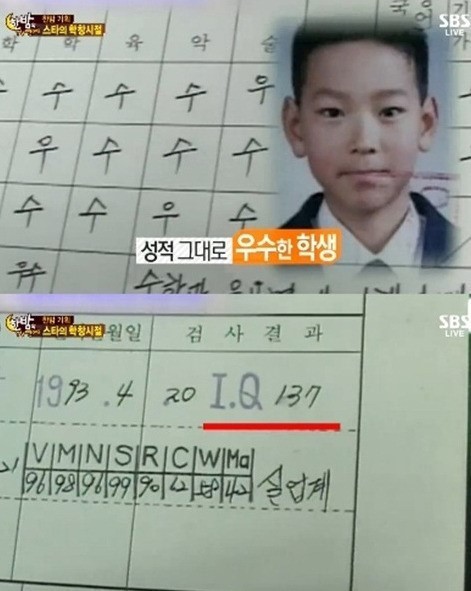 한밤 기획
스타의 학창시절
SBS
LIVE
학 육 악 술
수 수 수 우
우 수 수 수
수 수 우 수
성적 그대로 우수한 학생
우수
한밤 기획
스타의 학창시절
SBS
LIVE
월일 검사결과
1993.4 20 I.Q 137
V M N S R C W Ma
96 98 96 99 90 62 58 42 실업계